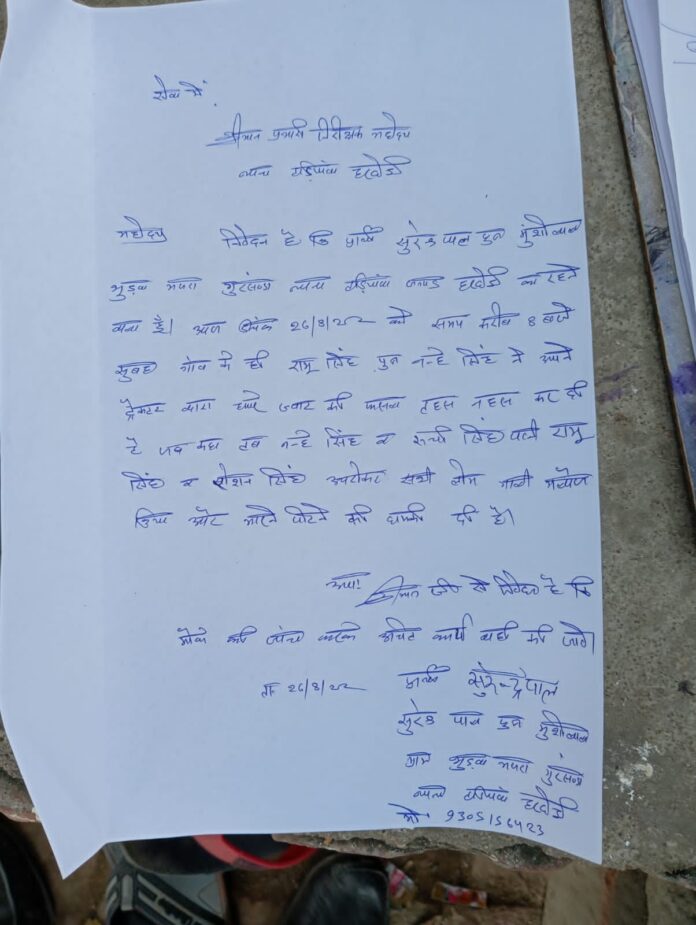 सेवा में,
श्रीमान प्रभारी निरीक्षक महोदय
थाना हरदोई
महोदय निवेदन है कि प्रार्थी पाल पुत्र मुंशीलाल
भुड़वा थाना जनपद हरदोई का रहने
वाला है। आज दिनांक 26/8/ को समय करीब 8 बजे
सुबह गांव के ही रामू सिंह पुत्र नन्हे सिंह ने अपने
ट्रैक्टर द्वारा ज्वार की फसल तहस नहस कर दी
है जब कहा तब नन्हे सिंह व सिंह पत्नी रामू
सिंह व रोशन सिंह उपरोक्त सभी लोग गाली गलौज
किया और मारने पीटने की धमकी दी है।
अतः श्रीमान जी से निवेदन है कि
मौके की जांच करके उचित कार्यवाही की जावे।
ता 26/8/ प्रार्थी सुरेन्द्रपाल
पाल पुत्र मुंशीलाल
ग्राम भुड़वा
थाना हरदोई
मो. 9305156423